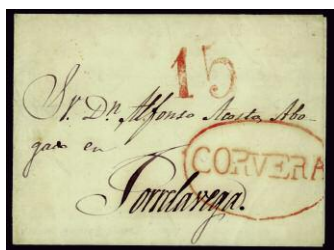 15
Sr. Dn. Alfonso Acosta, Abo-
gado en
CORVERA
Torrelavega.